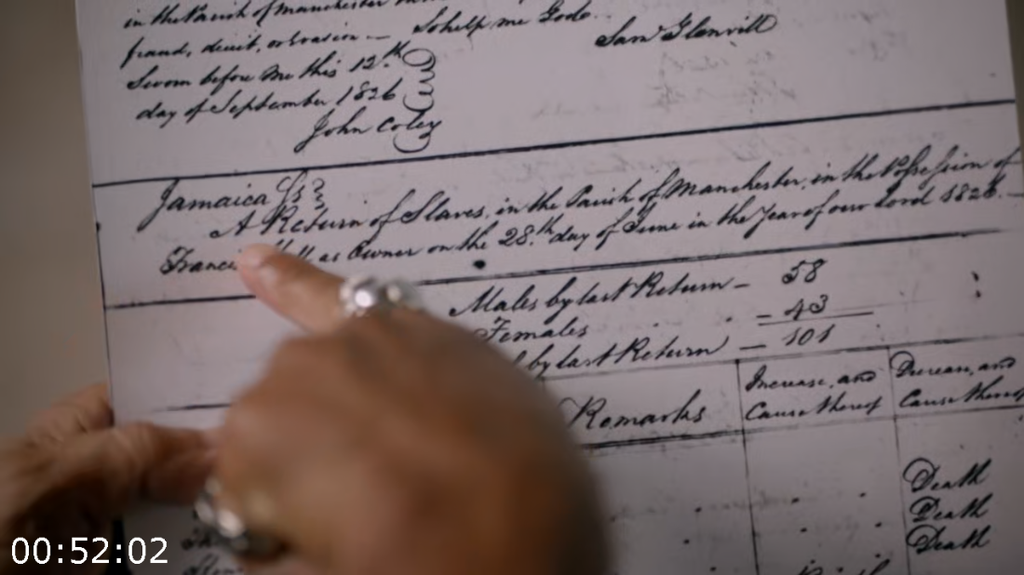 in the Parish of Manchester
fraud, deceit, or evasion — So help me God.
Sam Glanvill
Sworn before me this 12th
day of September 1826
John Coley
Jamaica Ss
A Return of Slaves, in the Parish of Manchester, in the Possession of
as Owner on the 28th day of June in the Year of our Lord 1826. —
Males by last Return — 58
Females — 43
by last Return — 101
Remarks
Increase, and
Cause thereof
Decrease, and
Cause thereof
Death
Death
Death
00:52:02